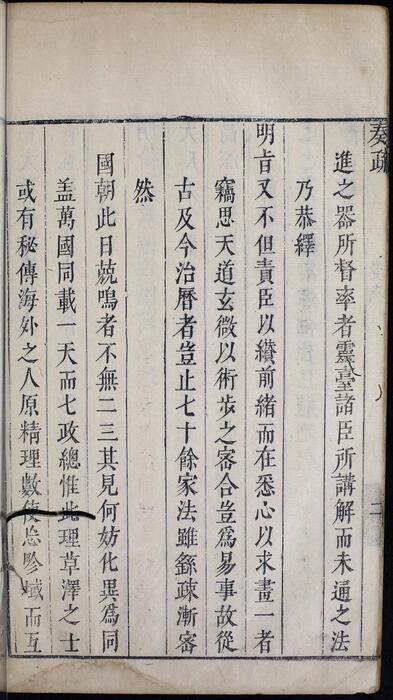 奏疏
進之器所督率者靈臺諸臣所講解而未通之法
乃恭繹
明旨又不但責臣以纘前緒而在悉心以求畫一者
竊思天道玄微以術步之審合豈爲易事故從
古及今治曆者豈止七十餘家法雖繇疎漸審
然
國朝此日兢鳴者不無二三其見何妨化異爲同
盖萬國同載一天而七政總惟此理草澤之士
或有秘傳海外之人原精理數使忘畛域而互